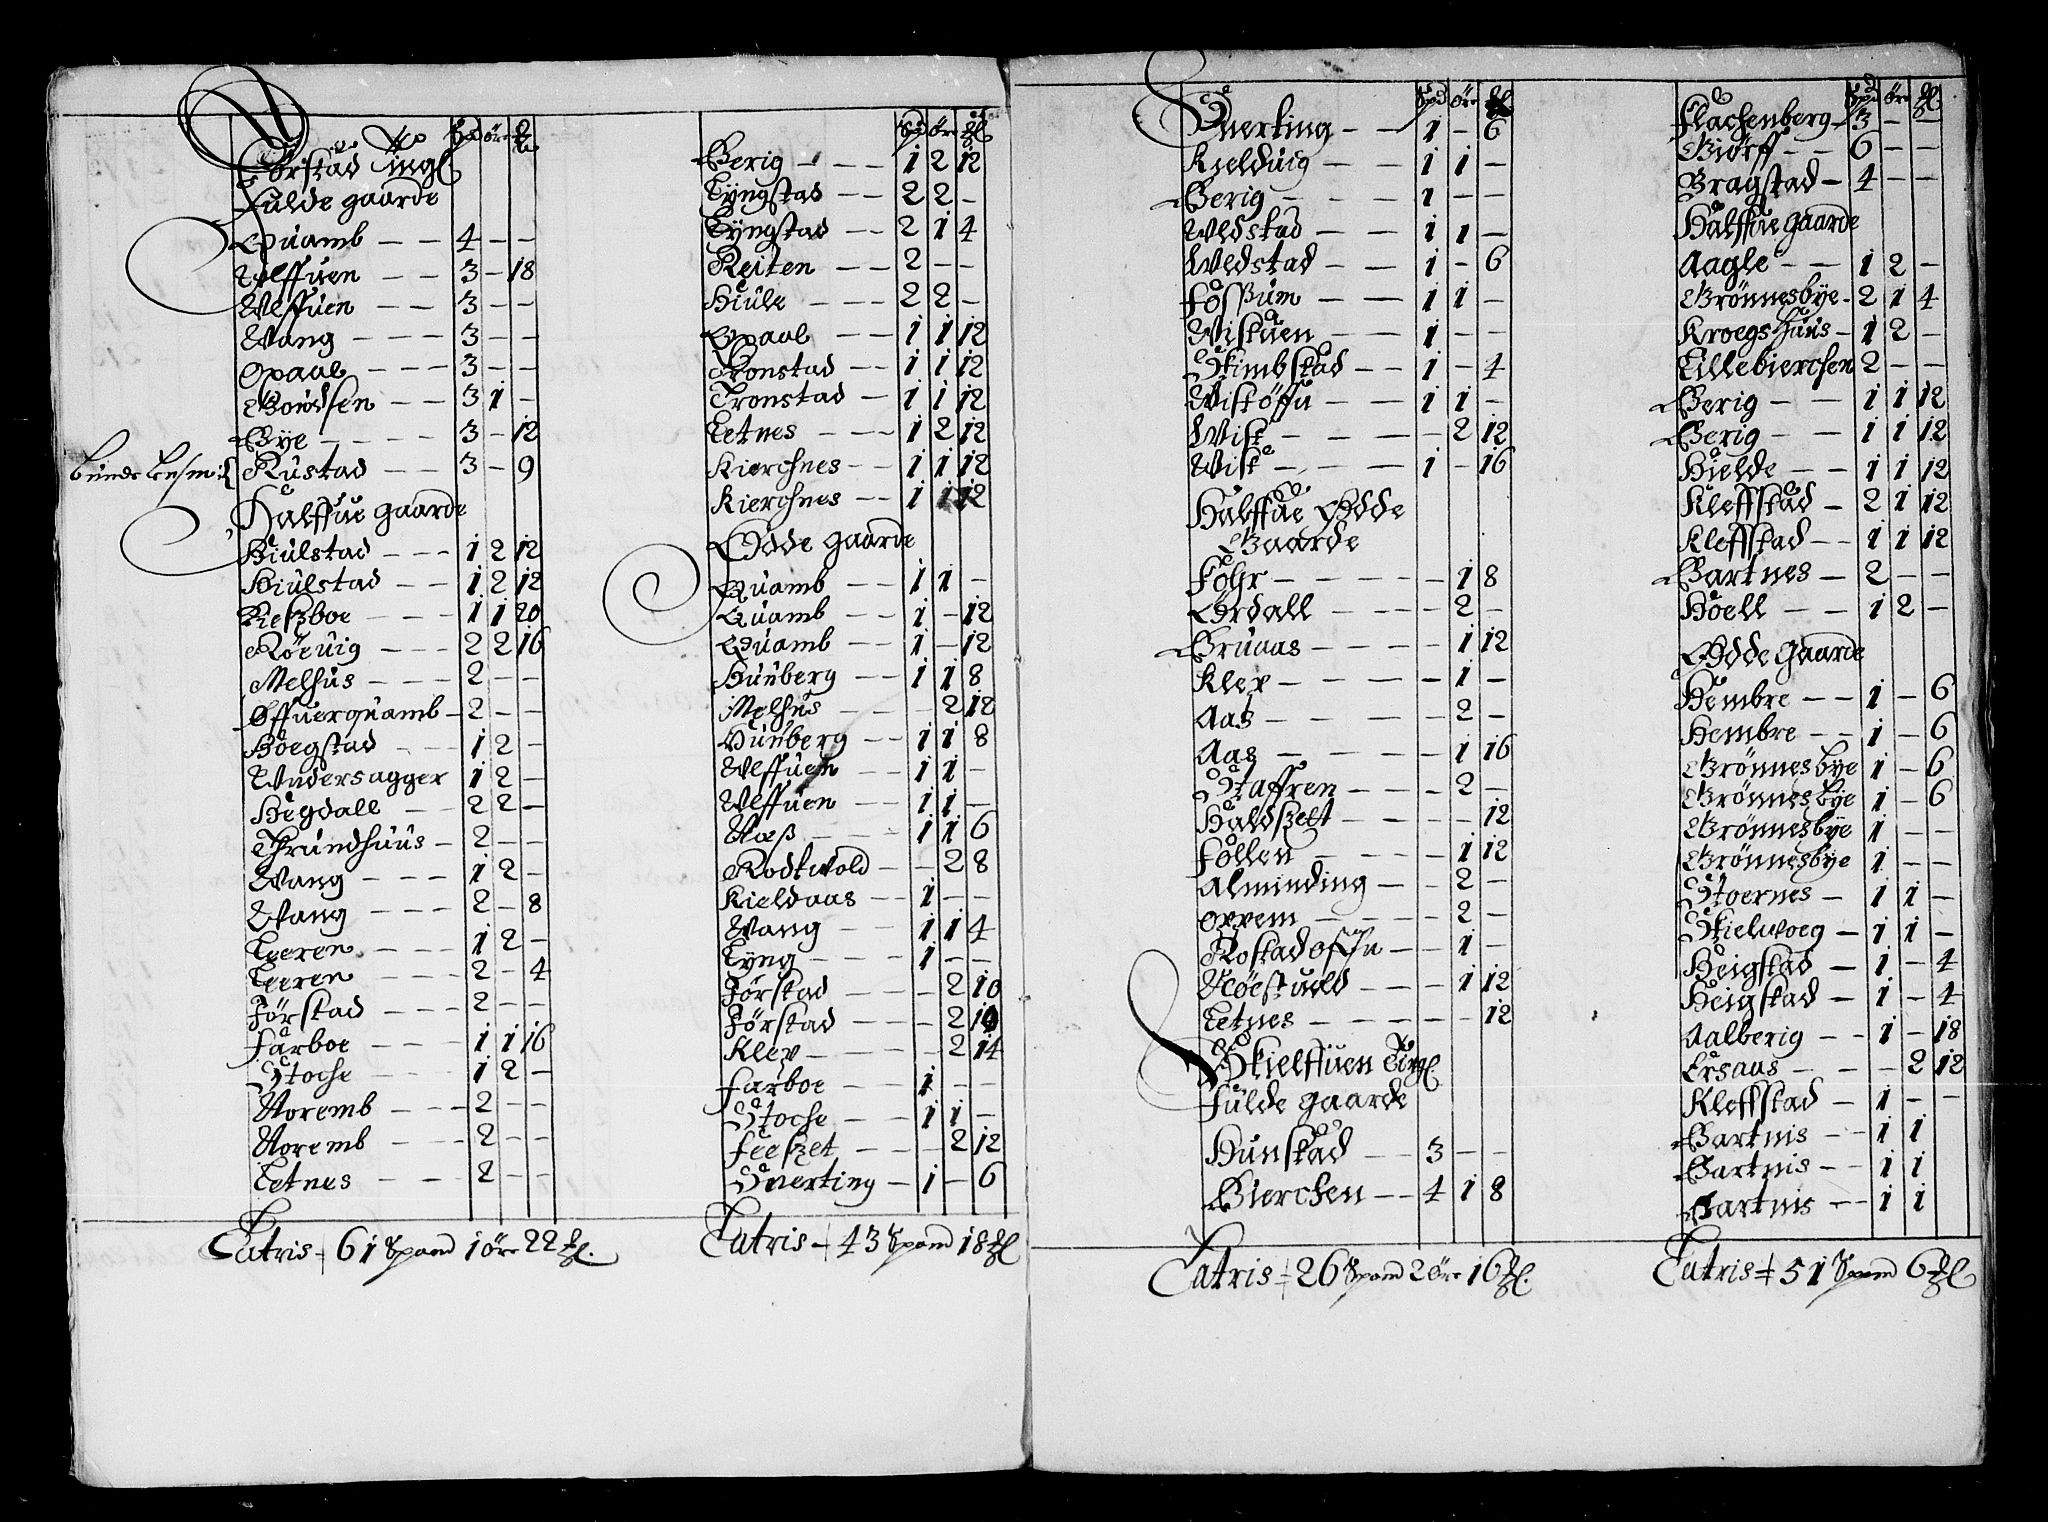 Spd øre
Førstad Tingl
Fulde gaarde
Quamb - - 4 - -
Ulffuen - - 3 - 18
Ulffuen - - 3 - -
Wang - - - 3 - -
Opaal - - - 3 - -
Goudsen - - 3 1 -
Bye - - - - 3 - 12
Rustad - - 3 - 9
Halffue gaarde
Hiulstad - - - 1 2 12
Hiulstad - - 1 2 12
Rieszboe - - - 1 1 20
Röeuig - - - 2 2 16
Melhus - - - 2 - -
Offuerquamb - 2 - -
Böegstad - - - 1 2 -
Undersagger 1 2 -
Hegdall - - 2 2 -
Thrundhuus - 2 - -
Wang - - - 1 2 -
Wang - - - 2 - 8
Leeren - - - 1 2 -
Leeren - - - 2 - 4
Förstad - - - 2 - -
Farboe - - - 1 1 16
Stoche - - - 1 2 -
Noremb - - - 2 - -
Noremb - - - 2 - -
Letnes - - - 2 - -
Latris 61 Spand 1 øre 22
Spd Øre
Berig - - - - 1 2 12
Tyngstad - - 2 2 -
Tyngstad - - 2 1 4
Reiten - - 2 - -
Hiule - - - 2 2 -
Opaal - - - 1 1 12
Tronstad - - 1 1 12
Tronstad - - 1 1 12
Letnes - - - 1 2 12
Kierchnes - - 1 1 12
Kierchnes - - 1 1 12
Ödde gaarde
Quamb - - - 1 1 -
Quamb - - - 1 - 12
Quamb - - - 1 - 12
Hunberg - - 1 1 8
Melhus - - - - 2 12
Hunberg - - 1 1 8
Ulffuen - - - 1 1 -
Ulffuen - - - 1 1 -
Næß - - - - 1 1 6
Rodtwold - - - 2 8
Kieldaas - - 1 - -
Wang - - - 1 1 4
Tyng - - - - 1 - -
Förstad - - - - 2 10
Förstad - - - - 2 10
Klep - - - - - 2 14
Farboe - - - 1 - -
Stoche - - - 1 1 -
Feeszet - - - - 2 12
Suerting - 1 - 6
Latris - 43 Spand 18
Spd øre
Suerting - - 1 - 6
Kielduig - - 1 1 -
Berig - - - - 1 - -
Wedstad - - 1 1 -
Wedstad - - 1 - 6
Fossum - - 1 1 -
Wistuen - - - 1 - -
Kimbstad - - 1 - 4
Wistöffn - - 1 1 -
Wist - - - - - 2 12
Wist - - - - 1 - 16
Halffue Ödde
Gaarde
Föhr - - - - - 1 8
Ördall - - - - 2 -
Bruaas - - - - 1 12
Klep - - - - - 1 -
Aas - - - - - 2 -
Aas - - - - - 1 16
Staffren - - - - 2 -
Haldszett - - - - - 12
Föllen - - - - 1 12
Alminding - - 2 -
Oppem - - - - 2 -
Rostad - - 1 -
Nöestuold - - - 1 12
Letnes - - - - - - 12
Skielffuen Tingl
Fulde gaarde
Hunstad - - 3 - -
Bierchen - - 4 1 8
Latris 26 Spand 2 Øre 16
Spd Øre
Flachenberg 3 - -
Giörff - - 6 - -
Bragstad - 4 - -
Halffue gaarde
Aagle - - - 1 2 -
Grönnesbye - 2 1 4
Kroegshuus - 1 2 -
Lillebierchen 2 - -
Berig - - - 1 1 12
Berig - - - 1 1 12
Hielde - - - 1 1 12
Kleffstad - 2 1 12
Kleffstad - - 1 1 12
Bartnes - 2 - -
Höell - - - 1 2 -
Ödde Gaarde
Hembre - - 1 - 6
Hembre - - 1 - 6
Grönnesbye 1 - 6
Grönnesbye 1 - 6
Grönnesbye 1 - -
Grönnesbye 1 - -
Stoernes - 1 1 -
Skielwoeg - 1 1 -
Heigstad - 1 - 4
Heigstad - 1 - 4
Aalberig - - 1 - 18
Ersaas - - - - 2 12
Kleffstad - 1 - -
Bartnis - - 1 1
Bartnis - - 1 1
Bartnis - - 1 1
Latris 51 Spand 6